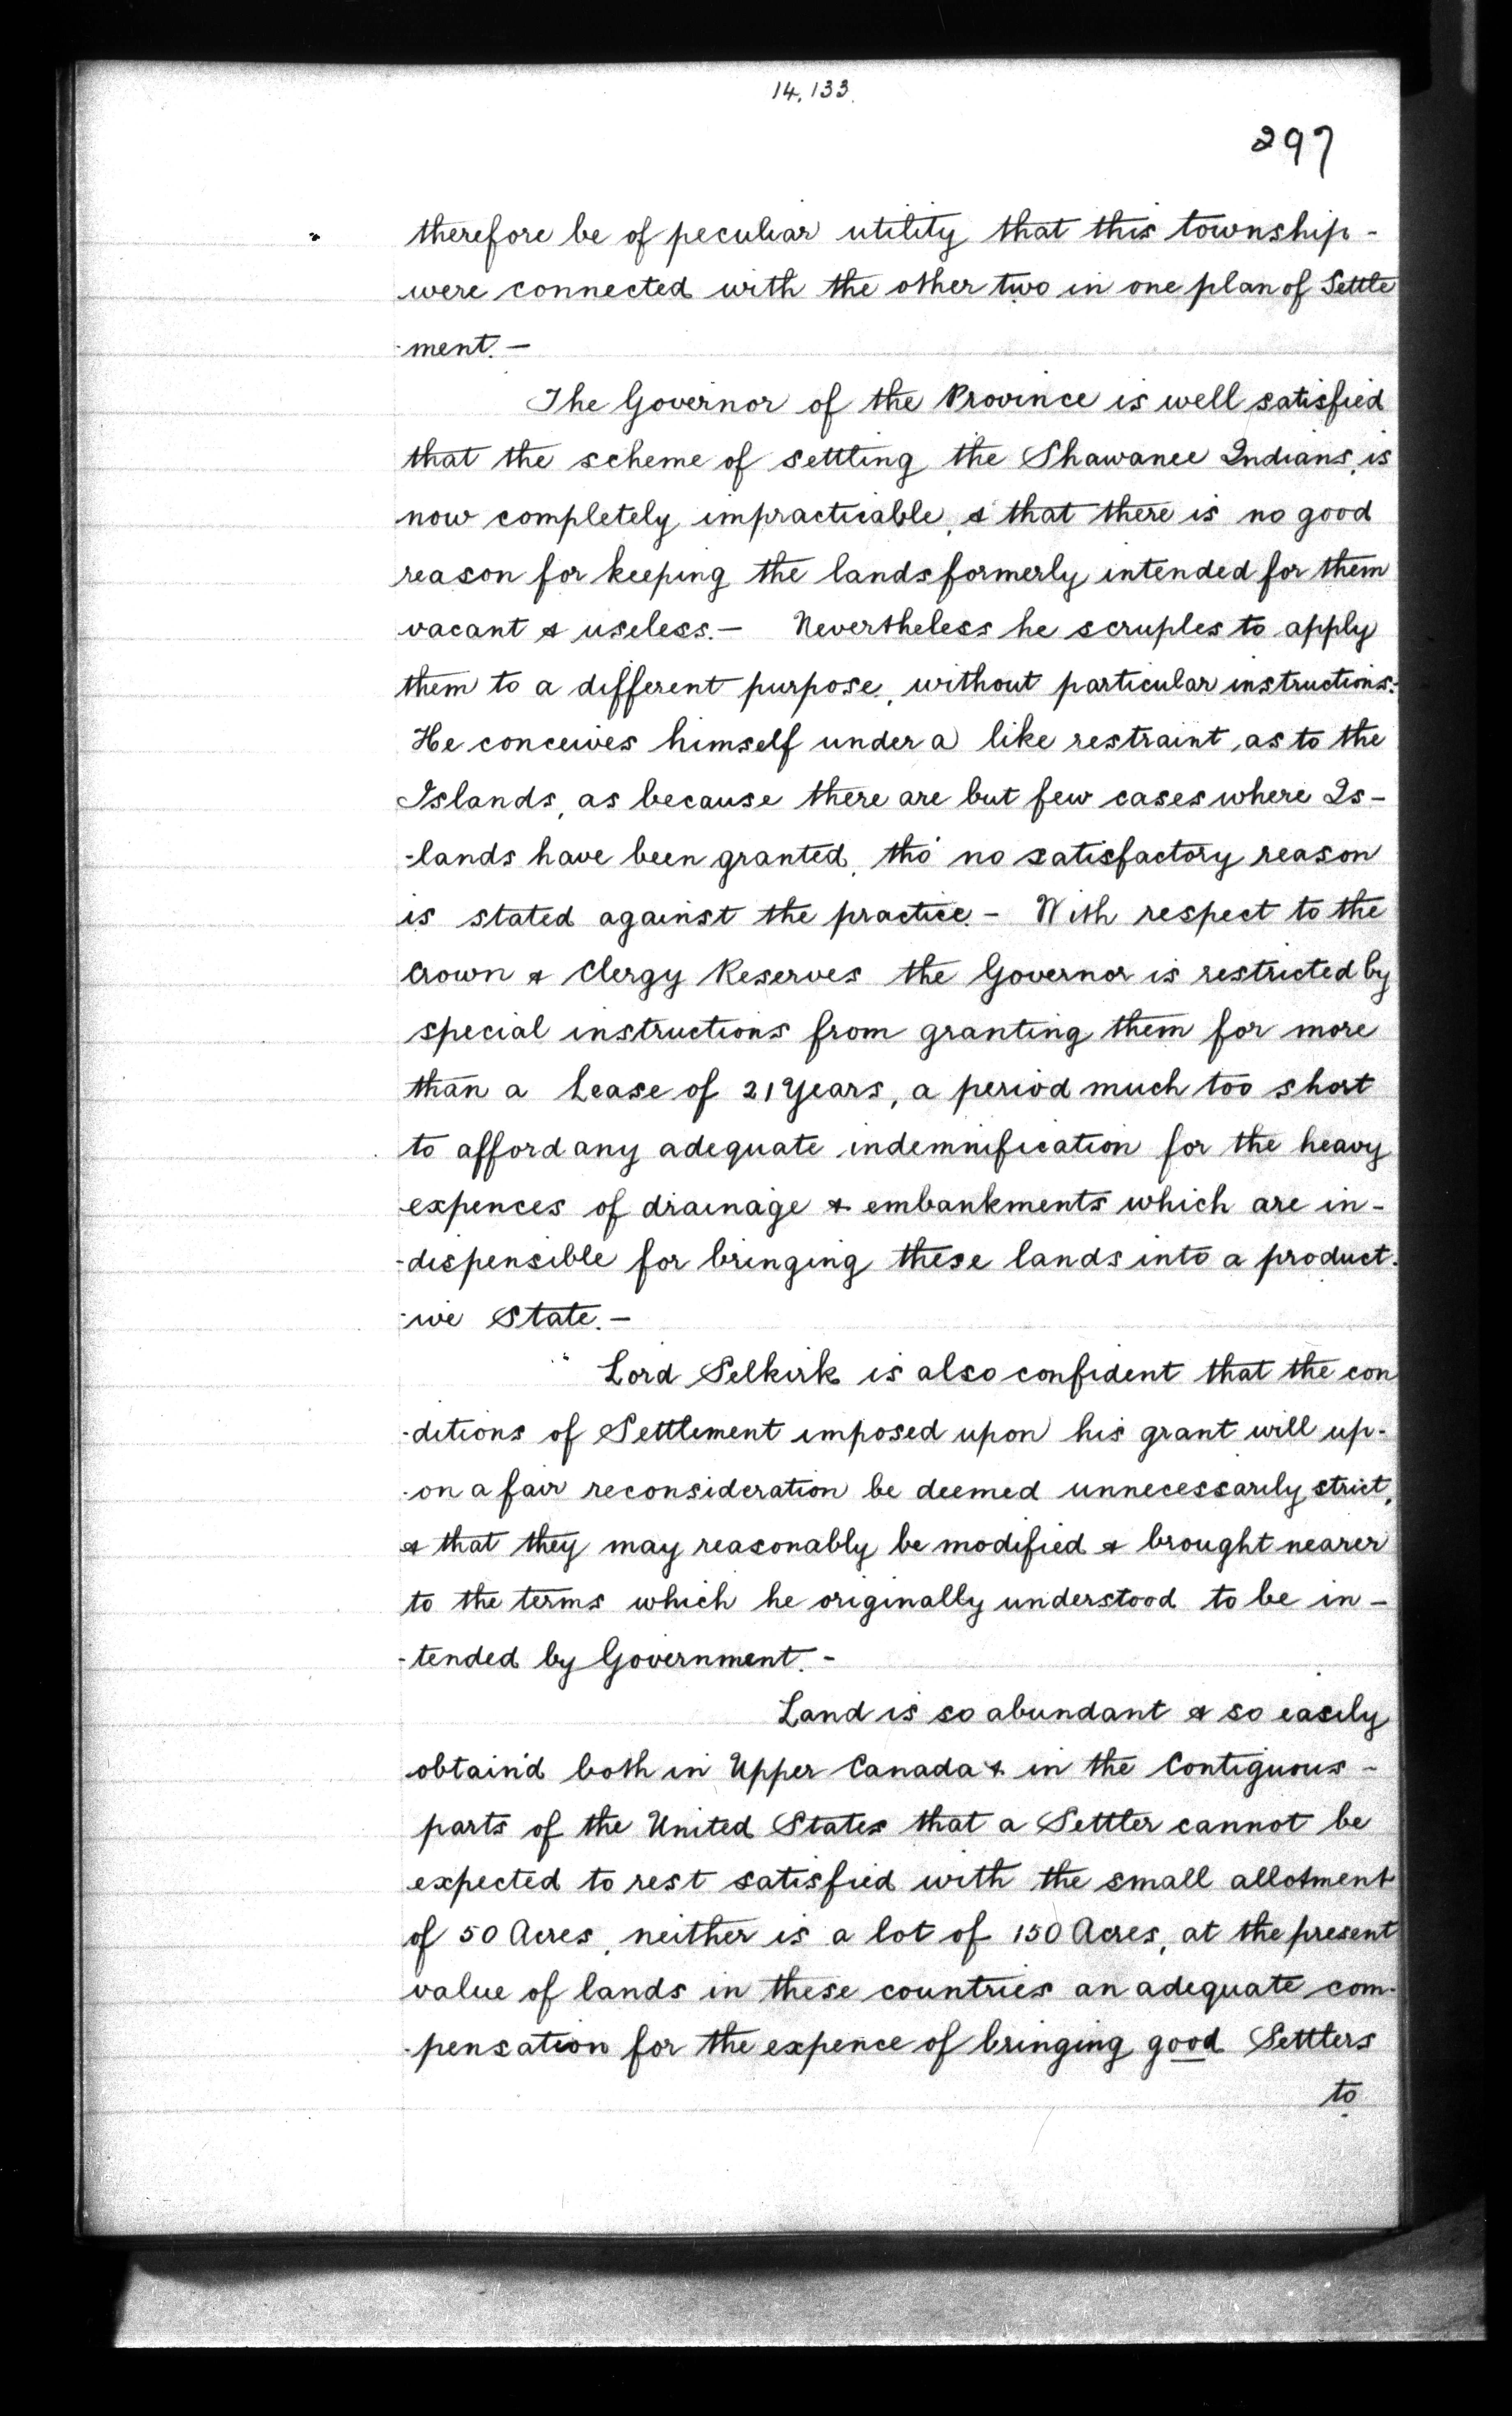 14,133.
297
therefore be of peculiar utility that this township -
were connected with the other two in one plan of Settle
-ment. -
The Governor of the Province is well satisfied
that the scheme of settling the Shawanee Indians, is
now completely impracticable, & that there is no good
reason for keeping the lands formerly intended for them
vacant & useless. - Nevertheless he scruples to apply
them to a different purpose, without particular instructions.-
He conceives himself under a like restraint, as to the
Islands, as because there are but few cases where Is-
-lands have been granted, tho' no satisfactory reason
is stated against the practice. - With respect to the
Crown & Clergy Reserves the Governor is restricted by
special instructions from granting them for more
than a Lease of 21 Years, a period much too short
to afford any adequate indemnification for the heavy
expences of drainage & embankments which are in-
-dispensible for bringing these lands into a product-
-ive State. -
Lord Selkirk is also confident that the con
-ditions of Settlement imposed upon his grant will up-
-on a fair reconsideration be deemed unnecessarily strict,
& that they may reasonably be modified & brought nearer
to the terms which he originally understood to be in -
-tended by Government. -
Land is so abundant & so easily
obtain'd both in Upper Canada & in the Contiguous -
parts of the United States that a Settler cannot be
expected to rest satisfied with the small allotment
of 50 Acres, neither is a lot of 150 Acres, at the present
value of lands in these countries an adequate com-
-pensation for the expence of bringing good Settlers
to